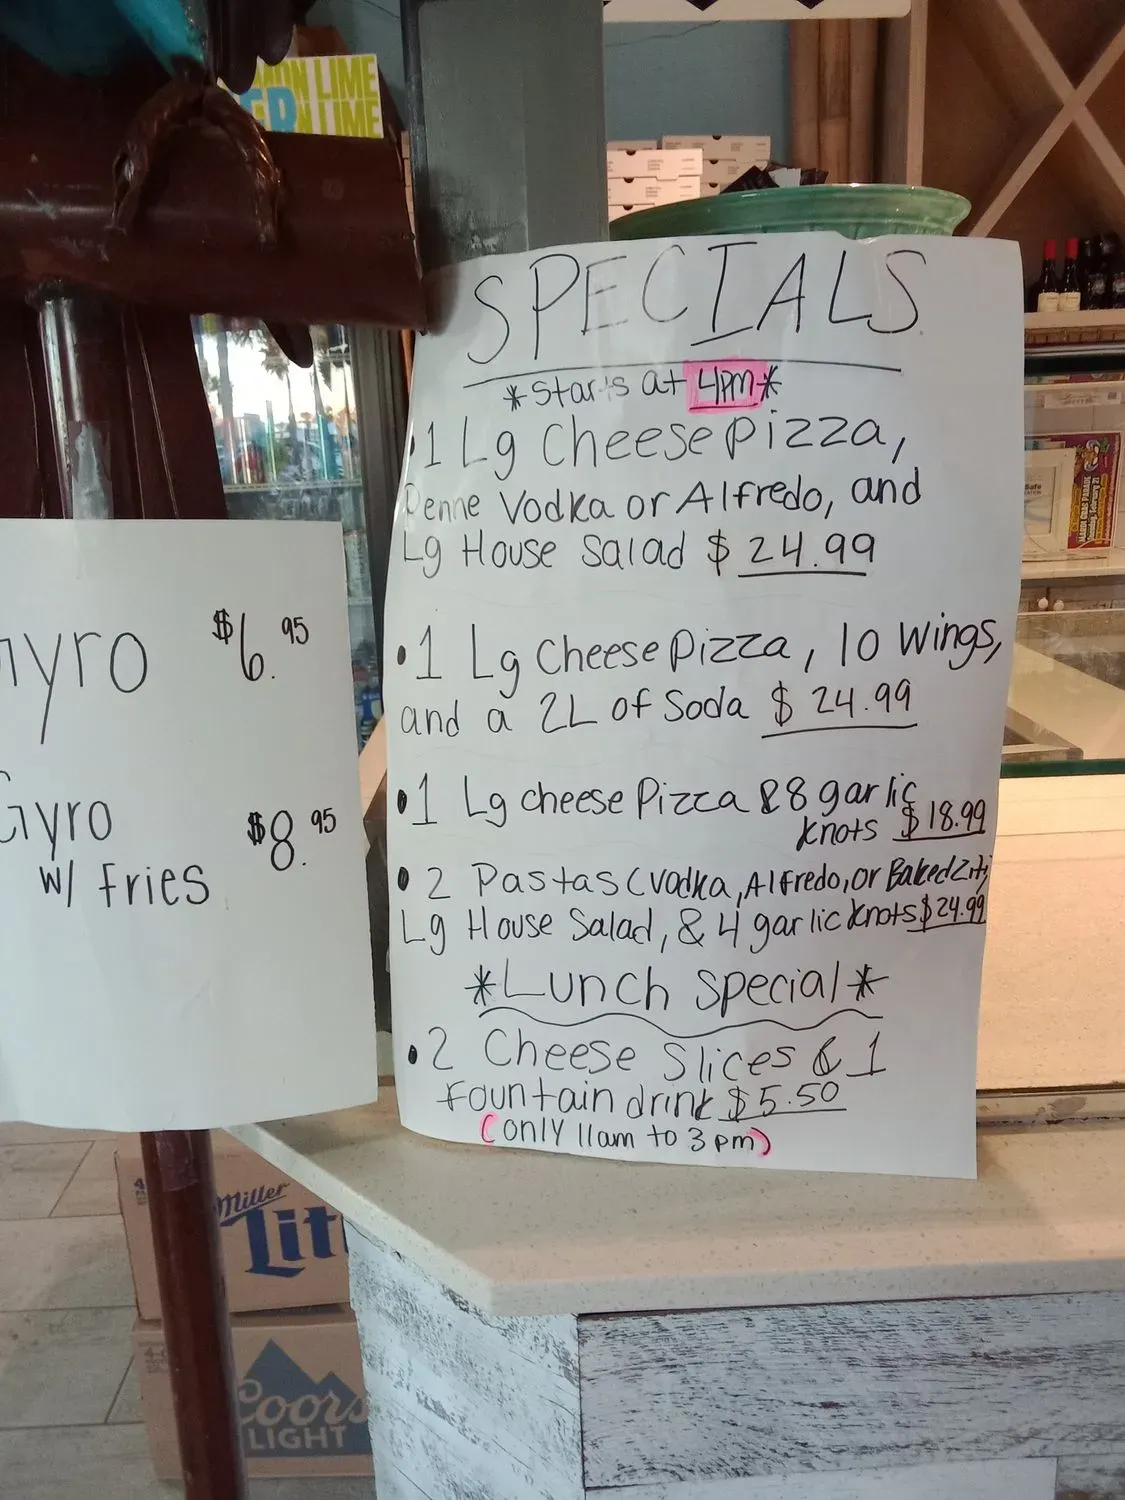 SPECIALS
*Starts at 4pm*
•1 Lg Cheese Pizza,
Penne Vodka or Alfredo, and
Lg House Salad $24.99
•1 Lg Cheese Pizza, 10 Wings,
and a 2L of Soda $24.99
•1 Lg cheese Pizza & 8 garlic
knots $18.99
•2 Pastas (Vodka, Alfredo, or Baked Ziti,
Lg House Salad, & 4 garlic knots $24.99
*Lunch Special*
•2 Cheese Slices & 1
Fountain drink $5.50
(only 11am to 3pm)
Gyro $6.95
Gyro $8.95
w/ Fries
LIME
N LIME
Miller
Lit
Coors
LIGHT